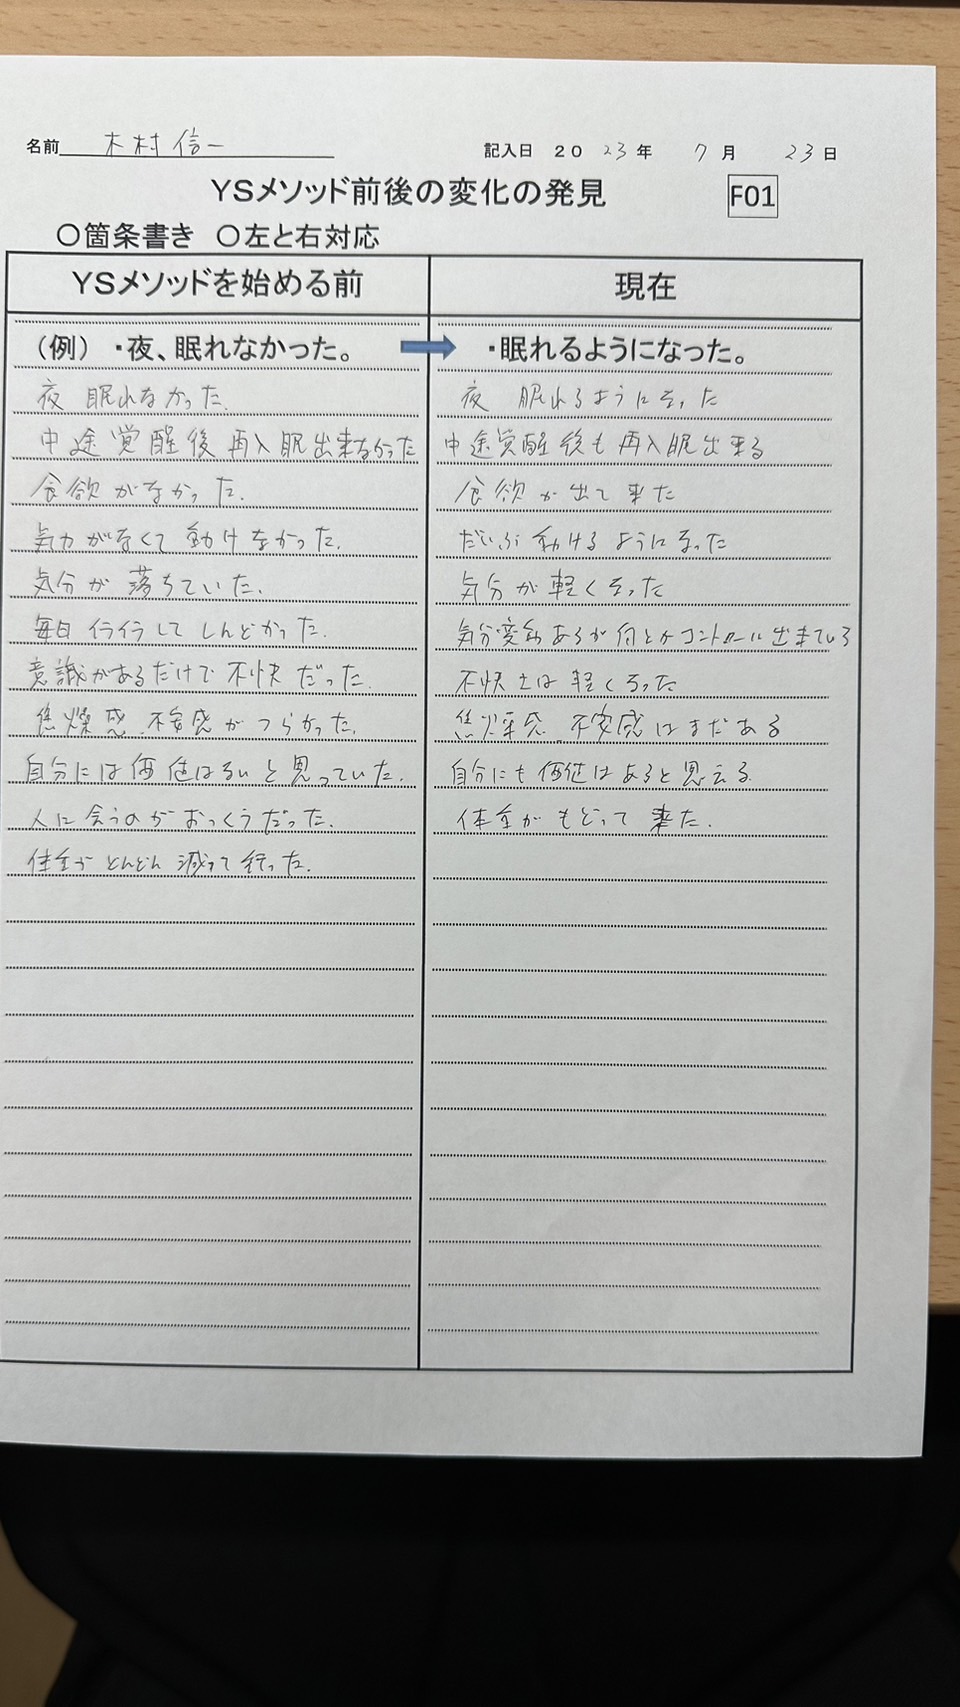 名前 木村信一 記入日 2023年 7月 23日
YSメソッド前後の変化の発見 F01
○箇条書き ○左と右対応
YSメソッドを始める前 現在
(例) ・夜、眠れなかった。 ・眠れるようになった。
夜 眠れなかった。 夜 眠れるようになった
中途覚醒後再入眠出来なかった 中途覚醒後も再入眠出来る
食欲がなかった。 食欲が出て来た
気力がなくて動けなかった。 だいぶ動けるようになった
気分が落ちていた。 気分が軽くなった
毎日イライラしてしんどかった。 気分変動あるが何とかコントロール出来ている
意識があるだけで不快だった。 不快さは軽くなった
焦燥感、不安感がつらかった。 焦燥感、不安感はまだある
自分には価値はないと思っていた。 自分にも価値はあると思える
人に会うのがおっくうだった。 体重がもどって来た。
体重がどんどん減って行った。